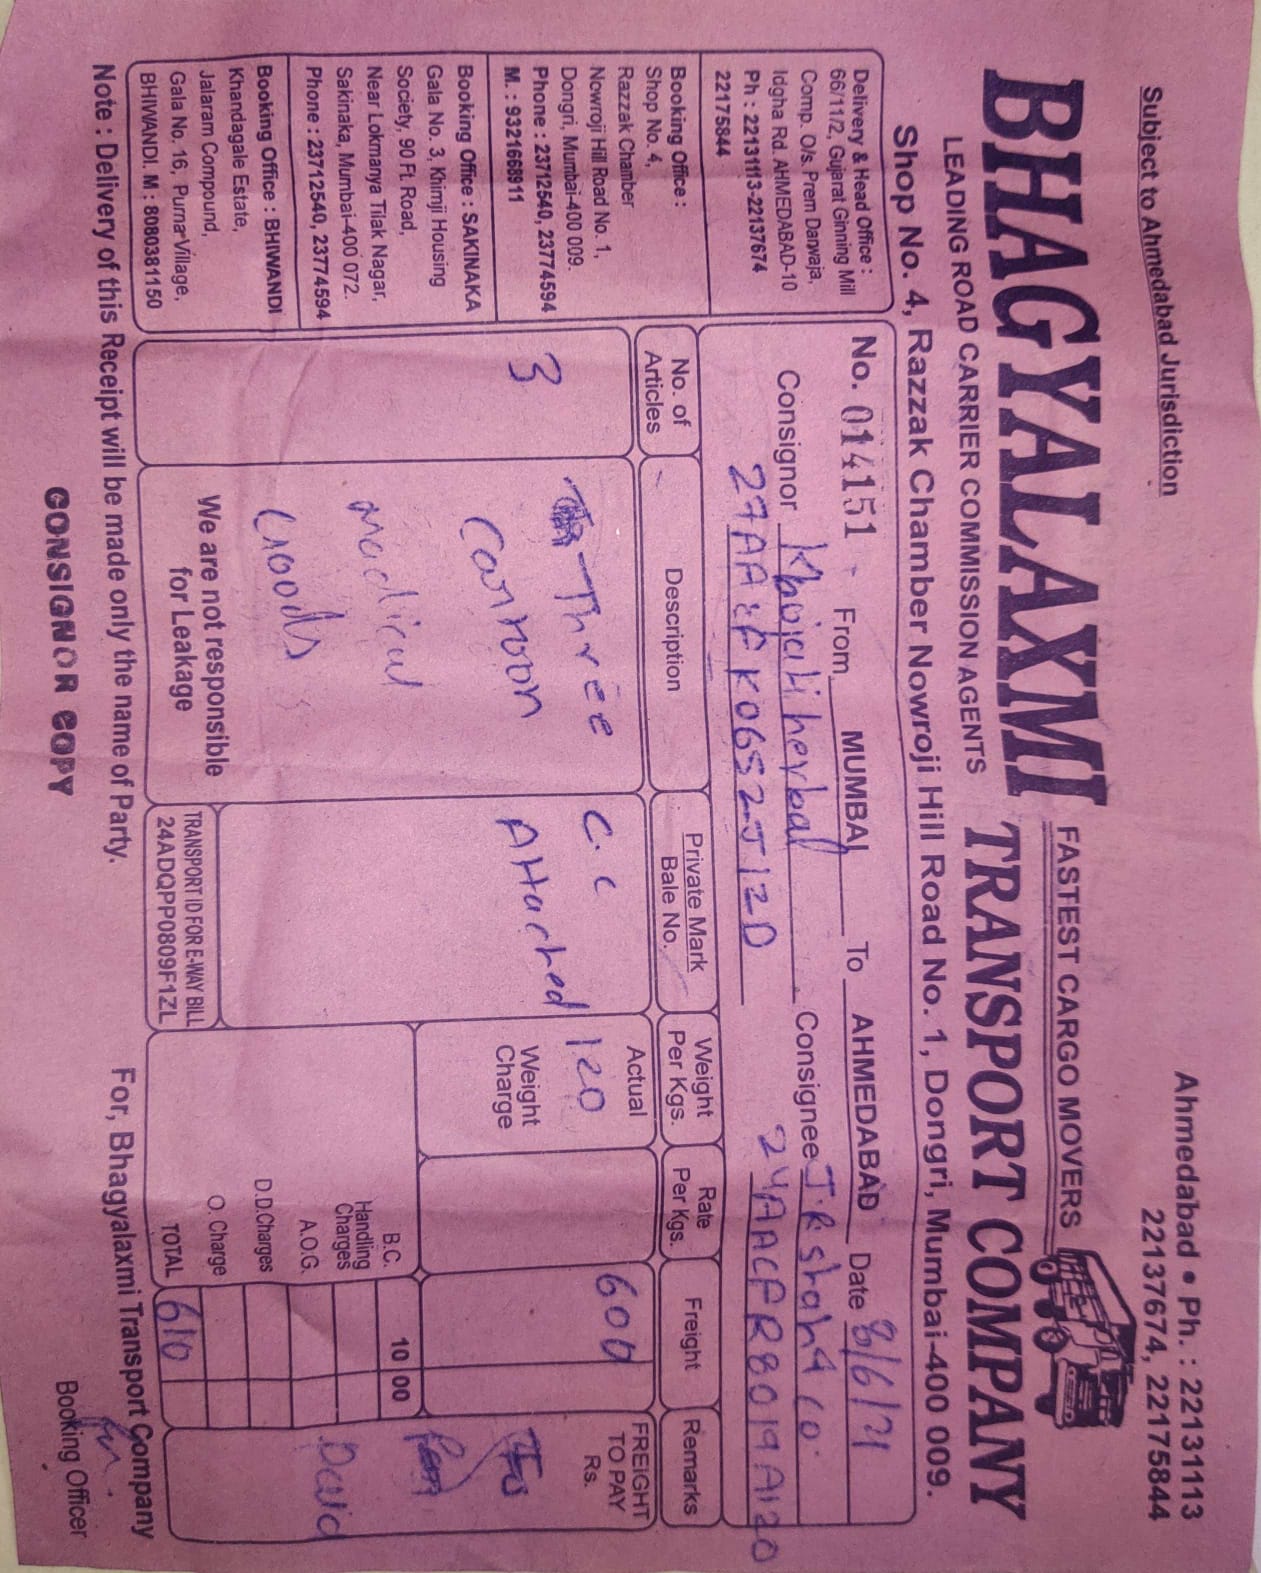 Subject to Ahmedabad Jurisdiction
Ahmedabad • Ph. : 22131113
22137674, 22175844
FASTEST CARGO MOVERS
BHAGYALAXMI TRANSPORT COMPANY
LEADING ROAD CARRIER COMMISSION AGENTS
Shop No. 4, Razzak Chamber Nowroji Hill Road No. 1, Dongri, Mumbai-400 009.
Delivery & Head Office :
66/11/2, Gujarat Ginning Mill
Comp. O/s. Prem Darwaja,
Idgha Rd. AHMEDABAD-10
Ph : 22131113-22137674
22175844
Booking Office :
Shop No. 4,
Razzak Chamber
Nowroji Hill Road No. 1,
Dongri, Mumbai-400 009.
Phone : 23712540, 23774594
M. : 9321668911
Booking Office : SAKINAKA
Gala No. 3, Khimji Housing
Society, 90 Ft. Road,
Near Lokmanya Tilak Nagar,
Sakinaka, Mumbai-400 072.
Phone : 23712540, 23774594
Booking Office : BHIWANDI
Khandagale Estate,
Jalaram Compound,
Gala No. 16, Purna-Village,
BHIWANDI. M : 8080381150
No. 014151 From MUMBAI To AHMEDABAD Date 8/6/21
Consignor Khojati herbal Consignee J.R shah & co.
27AAEFK0652J1ZD 24AACFR8019A1ZO
No. of Articles
Description
Private Mark
Bale No.
Weight Per Kgs.
Rate Per Kgs.
Freight
Remarks
3
Three
Cartoon
medical
Goods
C.C
Attached
Actual
120
Weight Charge
600
FREIGHT TO PAY Rs.
Paid
B.C. 10 00
Handling Charges
A.O.G.
D.D.Charges
O. Charge
TOTAL 610
We are not responsible
for Leakage
TRANSPORT ID FOR E-WAY BILL
24ADQPP0809F1ZL
Note : Delivery of this Receipt will be made only the name of Party.
For, Bhagyalaxmi Transport Company
CONSIGNOR COPY
Booking Officer